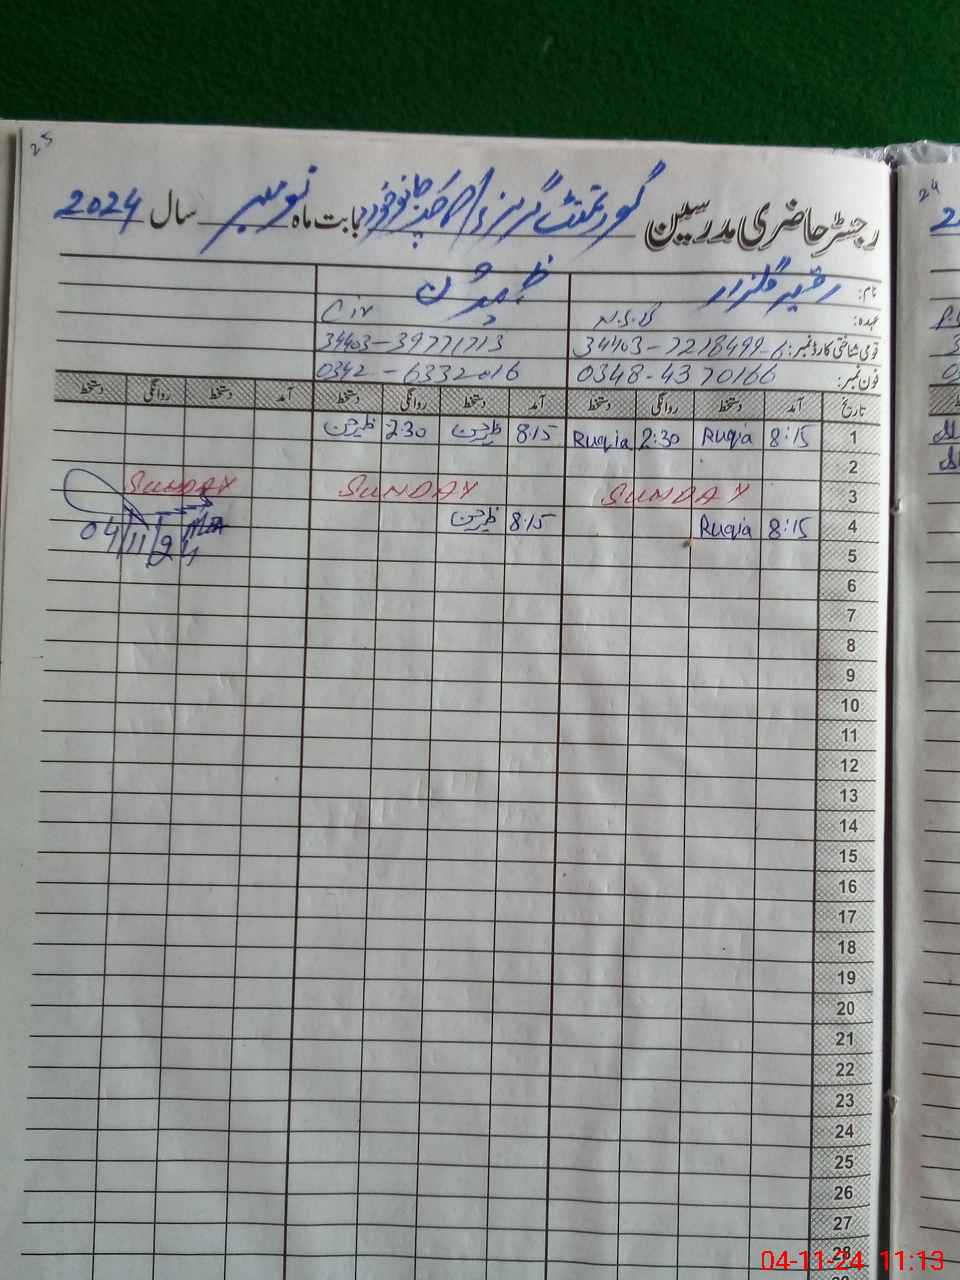 25
رجسٹر حاضری مدرسین گورنمنٹ گرلز بابت ماہ نومبر سال 2024
نام: رقیہ گلزار
عہدہ: Civ
قومی شناختی کارڈ نمبر: 34403-7218499-6 34403-39771713
فون نمبر: 0348-4370166 0342-6332016
تاریخ آمد دستخط روانگی دستخط آمد دستخط روانگی دستخط آمد دستخط روانگی دستخط
1 8:15 Ruqia 2:30 Ruqia 8:15 2:30
2
3 SUNDAY SUNDAY SUNDAY
4 8:15 Ruqia 8:15
04/11/24
5
6
7
8
9
10
11
12
13
14
15
16
17
18
19
20
21
22
23
24
25
26
27
28
24
04-11-24 11:13